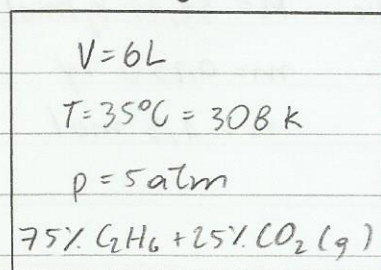 V=6L
T=35°C = 308 K
p = 5 atm
75% C₂H₆ + 25% CO₂ (g)